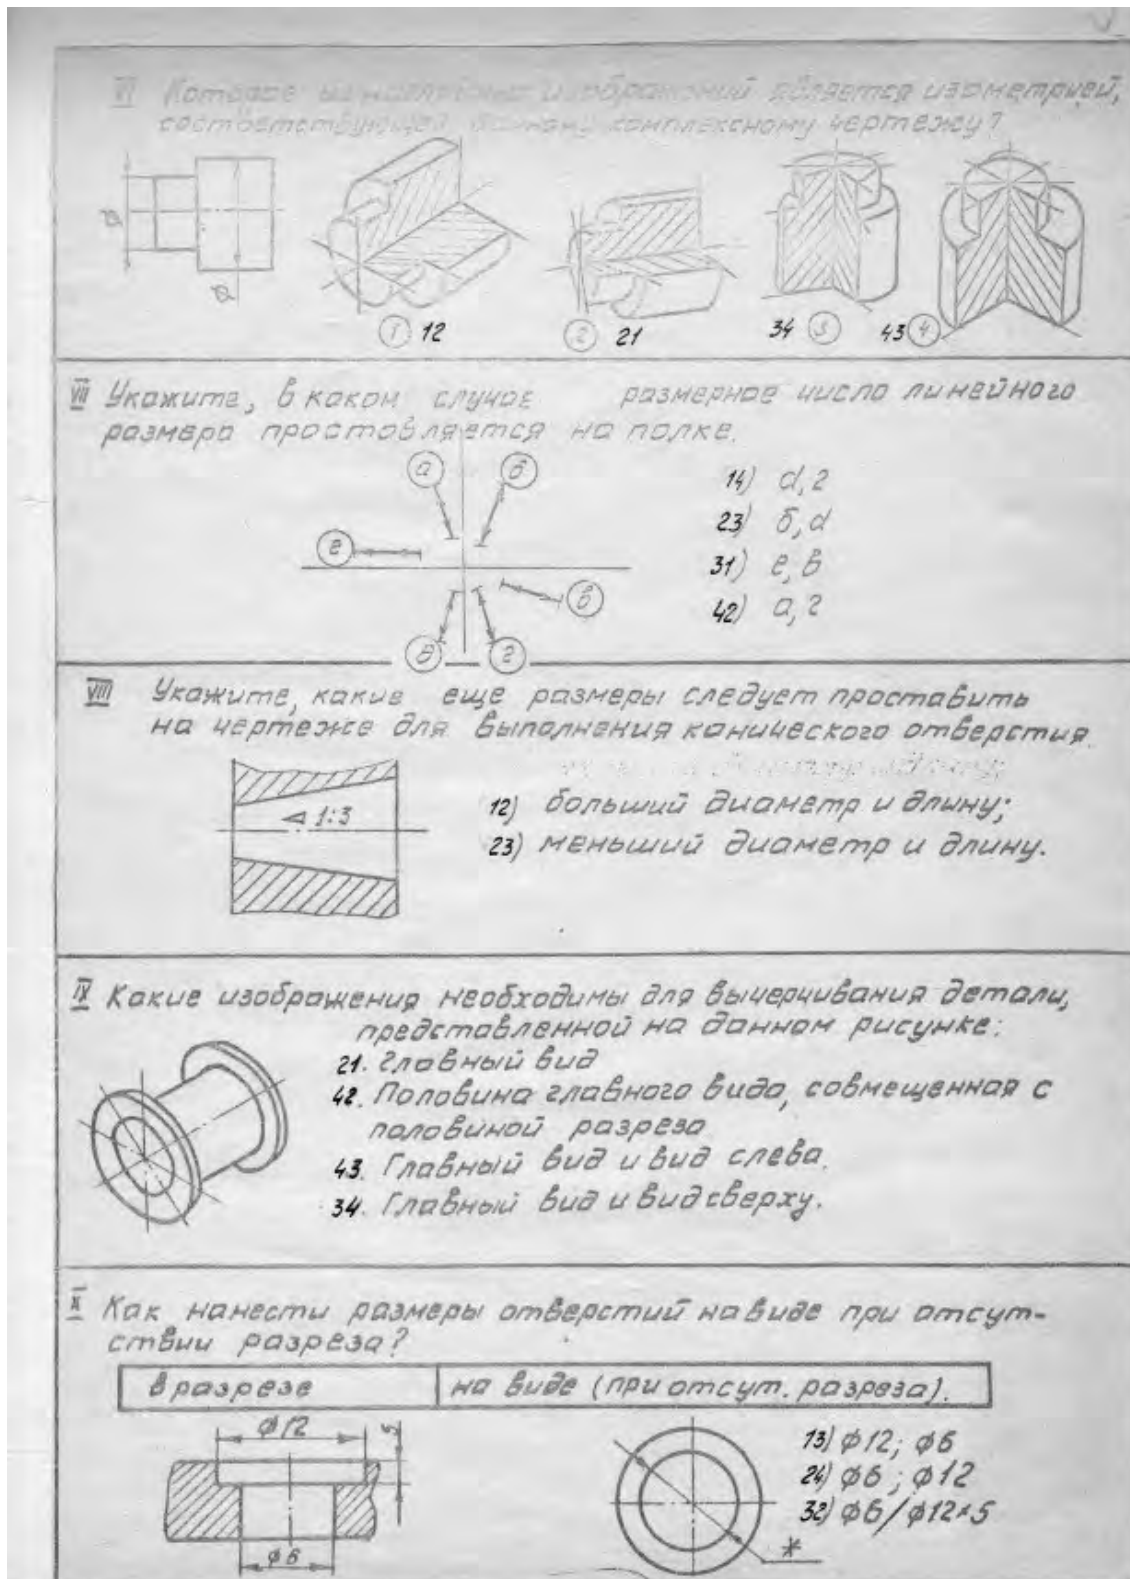 VI Которое из наглядных изображений является изометрией,
соответствующей данному комплексному чертежу?
1 12
2 21
34 3
43 4
VII Укажите, в каком случае размерное число линейного
размера проставляется на полке.
а б
е
в
д г
14) d, г
23) б, d
31) е, в
42) а, г
VIII Укажите, какие еще размеры следует проставить
на чертеже для выполнения конического отверстия
1:3
12) больший диаметр и длину;
23) меньший диаметр и длину.
IX Какие изображения необходимы для вычерчивания детали,
представленной на данном рисунке:
21. Главный вид
42. Половина главного вида, совмещенная с
половиной разреза
43. Главный вид и вид слева.
34. Главный вид и вид сверху.
X Как нанести размеры отверстий на виде при отсут-
ствии разреза?
в разрезе на виде (при отсут. разреза).
ф12 5
ф6
*
13) ф12; ф6
24) ф6; ф12
32) ф6/ф12×5